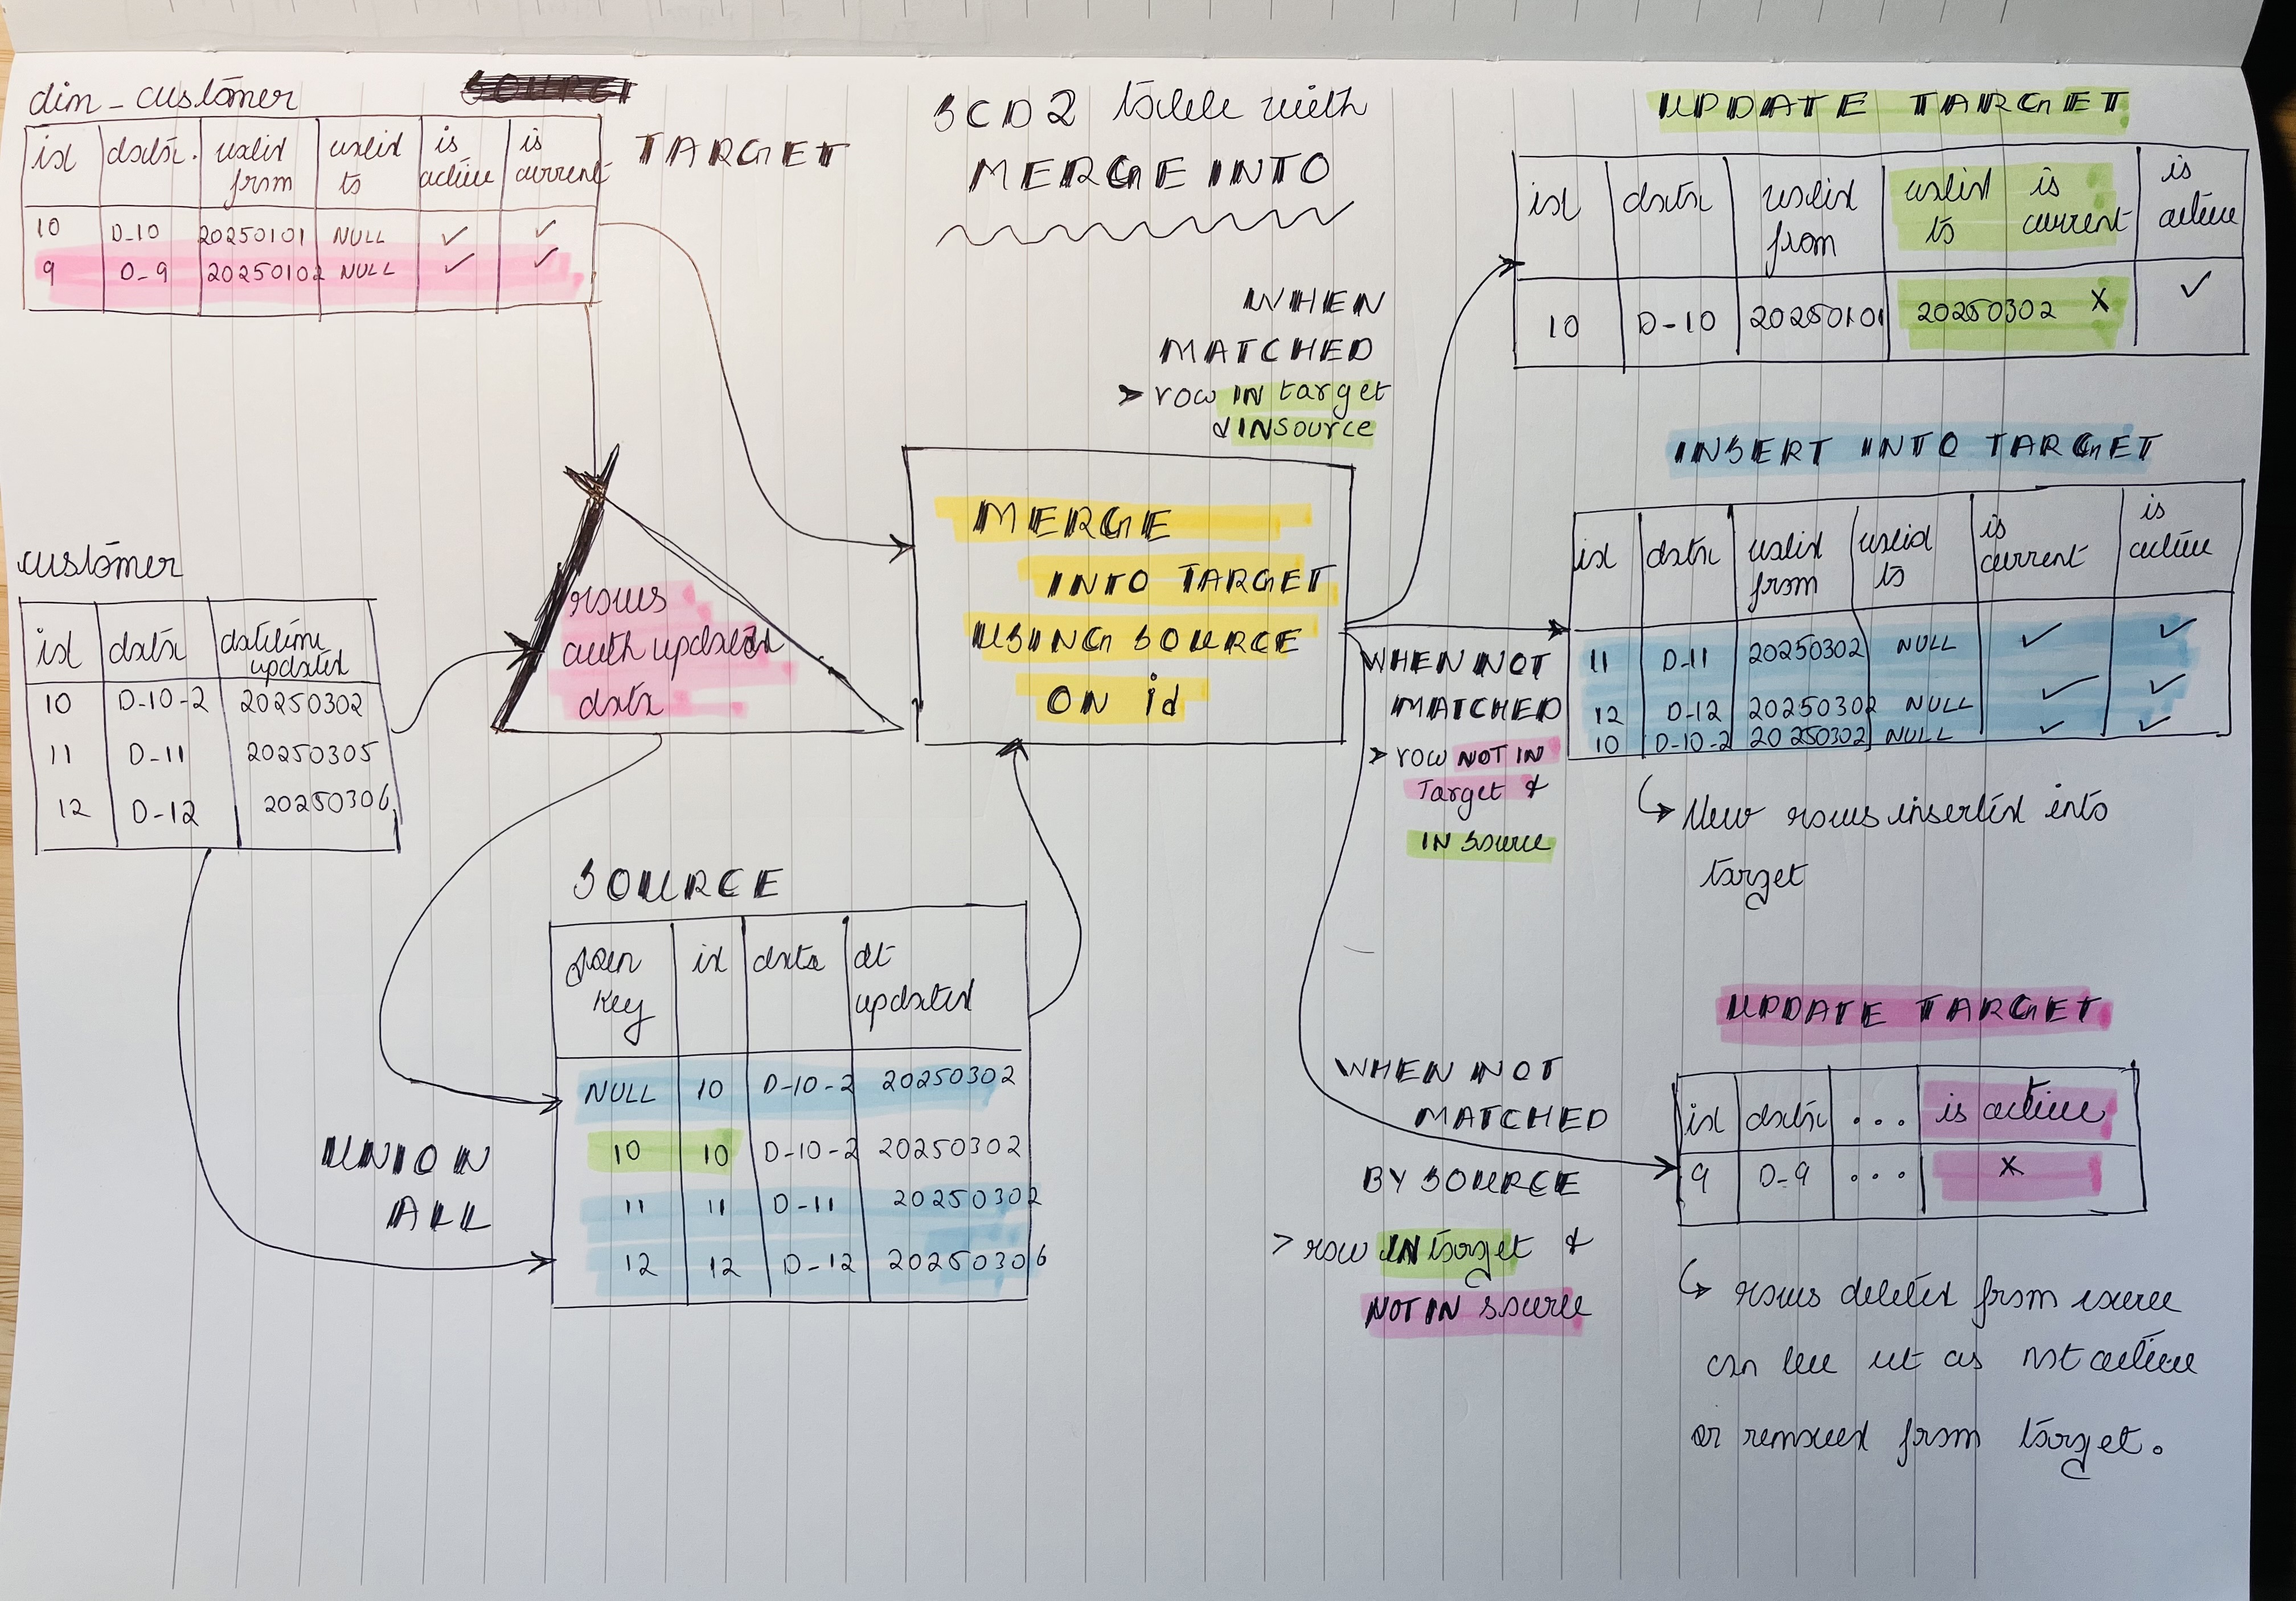 dim_customer
TARGET
id data valid from valid to is active is current
10 D-10 20250101 NULL ✓ ✓
9 D-9 20250102 NULL ✓ ✓
SCD2 table with
MERGE INTO
customer
id data datetime updated
10 D-10-2 20250302
11 D-11 20250305
12 D-12 20250306
rows
with updated
data
SOURCE
join key id data dt updated
NULL 10 D-10-2 20250302
10 10 D-10-2 20250302
11 11 D-11 20250302
12 12 D-12 20250306
UNION
ALL
MERGE
INTO TARGET
USING SOURCE
ON id
WHEN
MATCHED
> row IN target
& IN source
UPDATE TARGET
id data valid from valid to is current is active
10 D-10 20250101 20250302 X ✓
WHEN NOT
MATCHED
> row NOT IN
Target &
IN source
INSERT INTO TARGET
id data valid from valid to is current is active
11 D-11 20250302 NULL ✓ ✓
12 D-12 20250302 NULL ✓ ✓
10 D-10-2 20250302 NULL ✓ ✓
↳ New rows inserted into
target
WHEN NOT
MATCHED
BY SOURCE
> row IN target &
NOT IN source
UPDATE TARGET
id data ... is active
9 D-9 ... X
↳ rows deleted from source
can be set as not active
or removed from target.